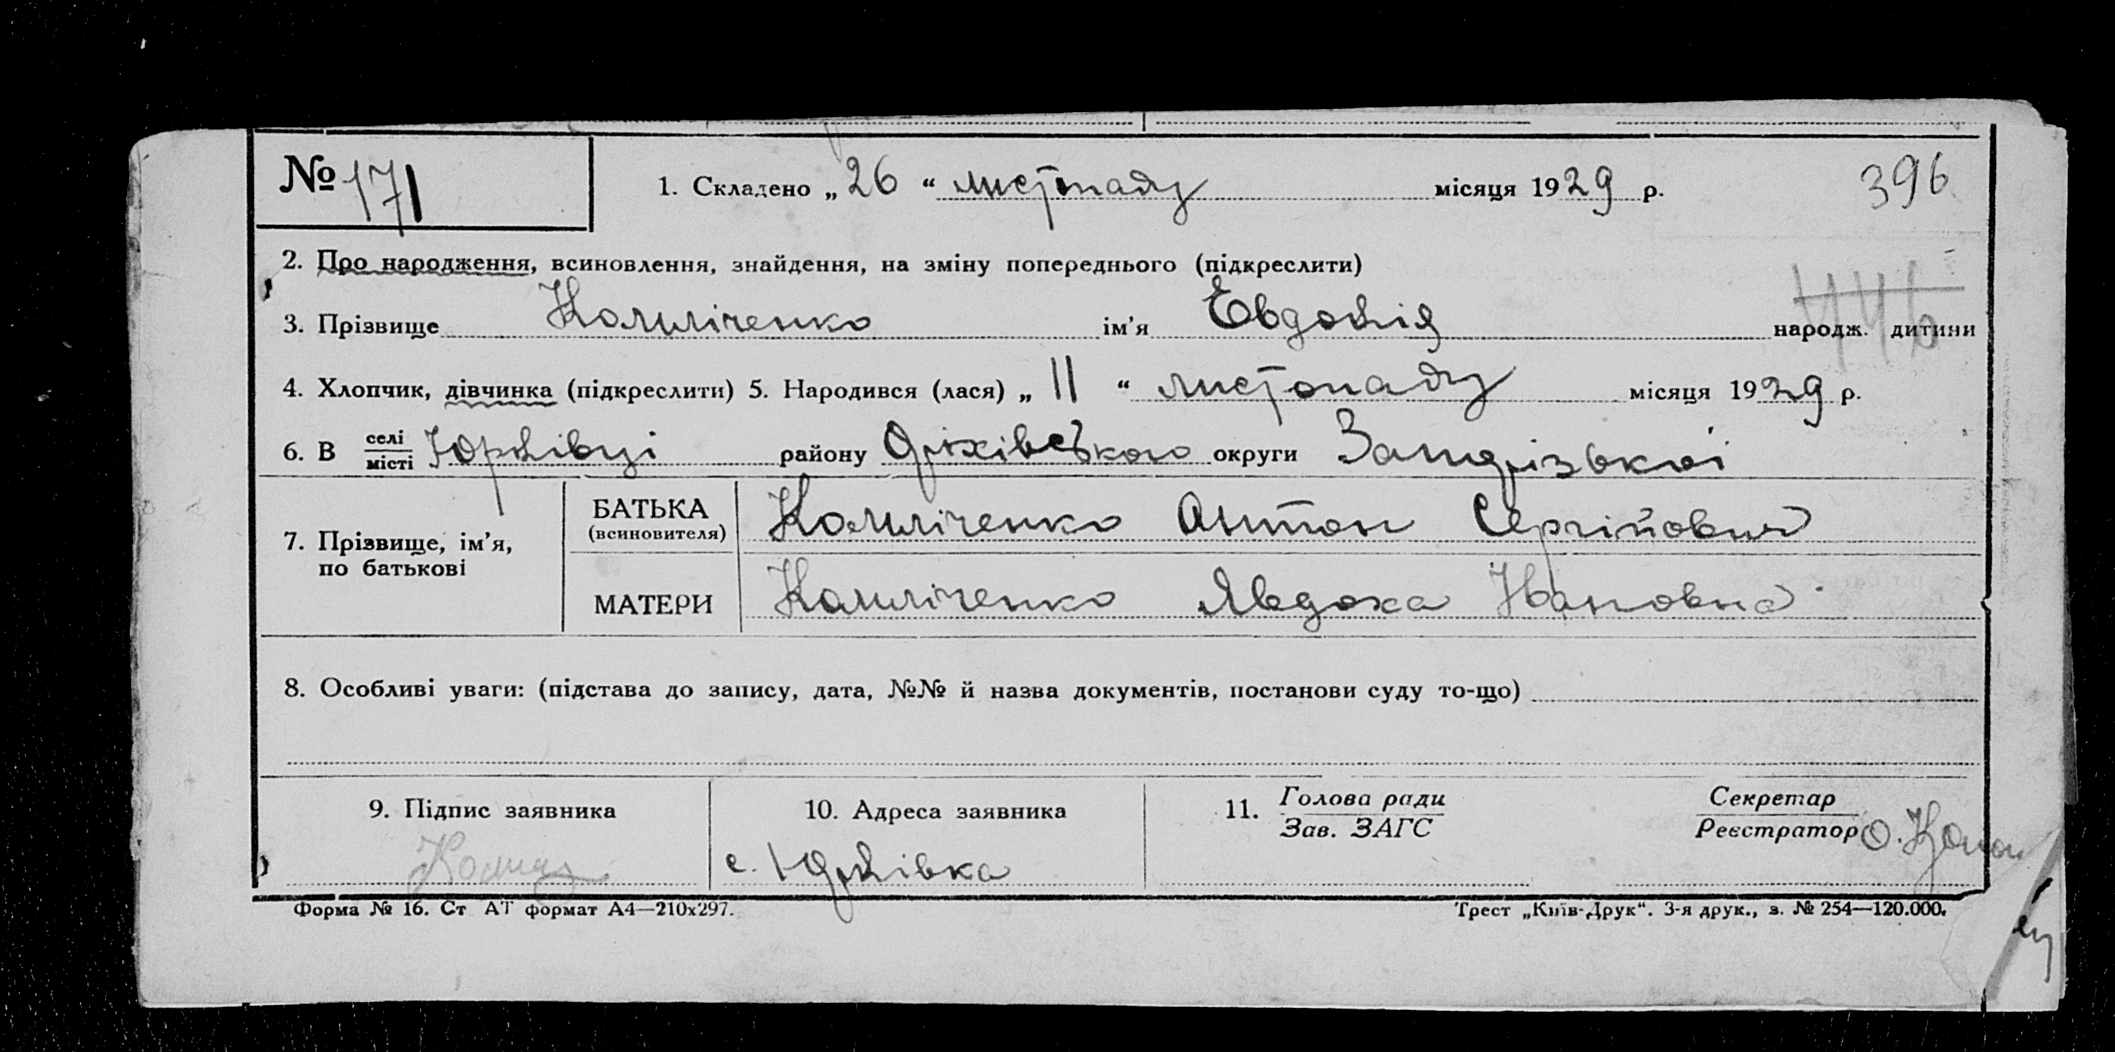 № 171 1. Складено „ 26 “ листопаду місяця 1929 р. 396
2. Про народження, всиновлення, знайдення, на зміну попереднього (підкреслити)
446
3. Прізвище Калиліченко ім'я Евдокія народж. дитини
4. Хлопчик, дівчинка (підкреслити) 5. Народився (лася) „ 11 “ листопаду місяця 1929 р.
6. В селі/місті Юрківці району Оріхівського округи Запорізької
7. Прізвище, ім'я, по батькові
БАТЬКА (всиновителя) Антон Сергійович
МАТЕРИ Явдоха Івановна
8. Особливі уваги: (підстава до запису, дата, №№ й назва документів, постанови суду то-що)
9. Підпис заявника
10. Адреса заявника
с. Юрківка
11. Голова ради / Зав. ЗАГС
Секретар / Реєстратор
Форма № 16. Ст АТ формат А4—210х297.
Трест „Київ-Друк“. 3-я друк., з. № 254—120.000.